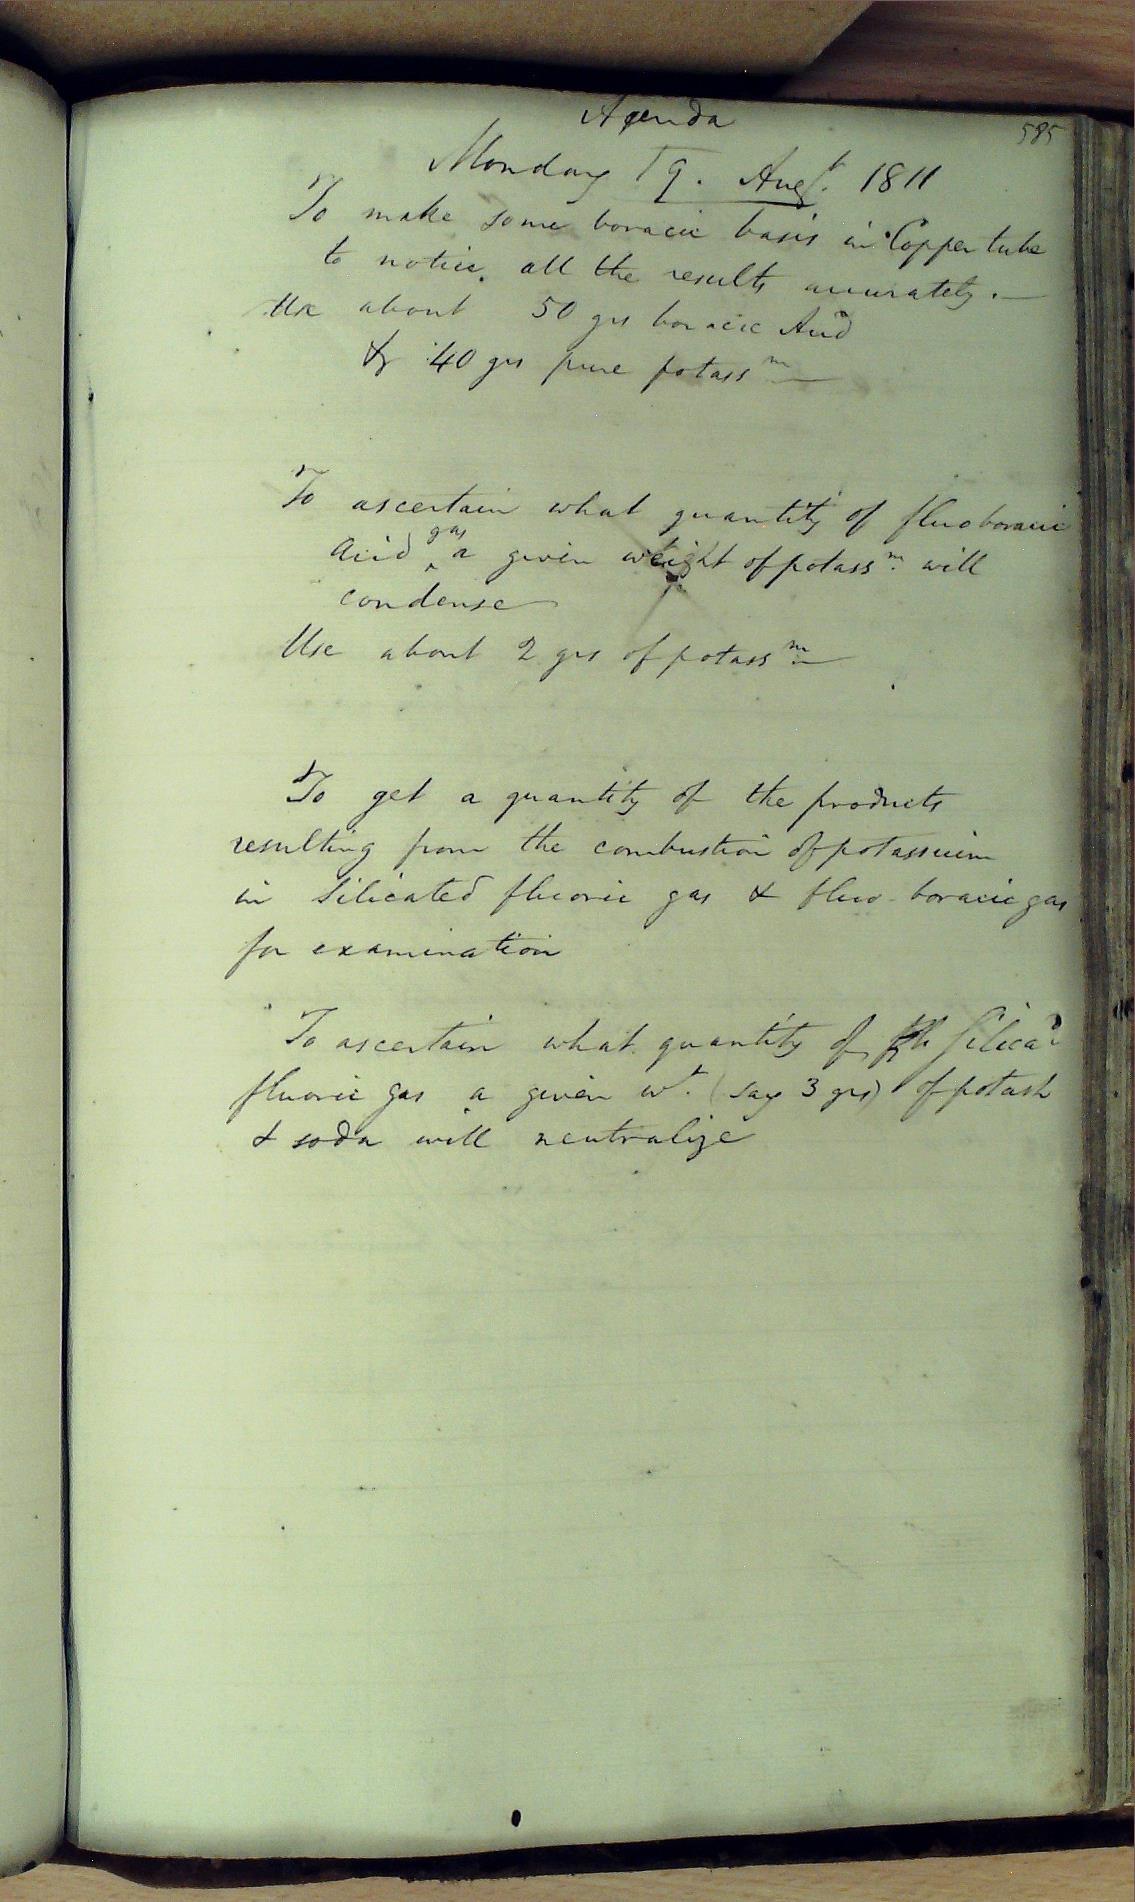 585
Agenda
Monday 19. Augt. 1811
To make some boracic basis in Copper tube
to notice all the results accurately. —
Use about 50 grs boracic Acid
& 40 grs pure potassm —
To ascertain what quantity of fluoboracic
Acid gas a given weight of potassm. will
condense
Use about 2 grs of potassm. —
To get a quantity of the products
resulting from the combustion of potassium
in Silicated fluoric gas & fluo-boracic gas
for examination
To ascertain what quantity of Silicad
fluoric gas a given wt. (say 3 grs) of potash
& soda will neutralize